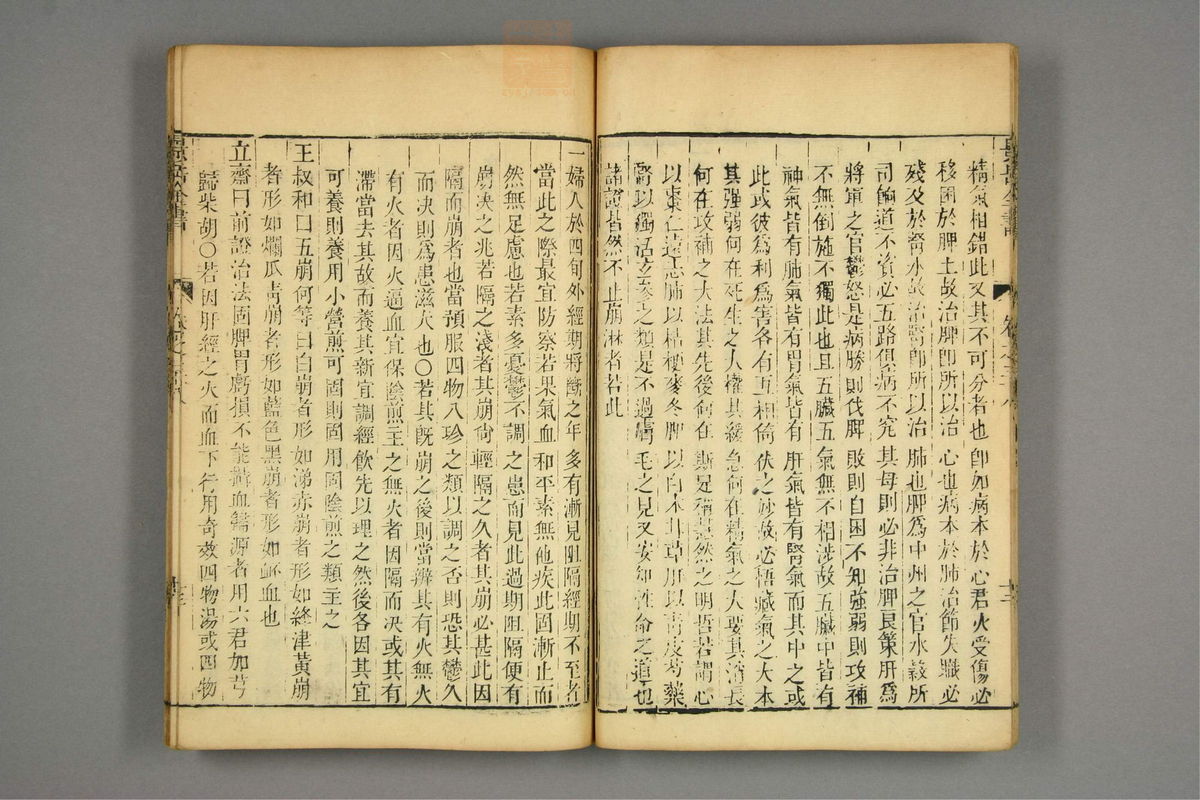 精氣相錯此又其不可分者也卽如病本於心君火受傷必
移困於脾土故治脾卽所以治心也病本於肺治節失職必
殘及於腎水故治腎卽所以治肺也脾爲中州之官水穀所
司飠道不資必五路俱病不究其母則必非治脾良策肝爲
將軍之官鬱怒是病勝則伐脾敗則自困不知強弱則攻補
不無倒施不獨此也且五臟五氣無不相涉故五臟中皆有
神氣皆有肺氣皆有胃氣皆有肝氣皆有腎氣而其中之或
此或彼爲利爲害各有互相倚伏之妙故必悟臟氣之大本
其強弱何在死生之大權其緩急何在精氣之大要其消長
何在攻補之大法其先後何在斯足稱慧然之明哲若謂心
以棗仁遠志肺以桔梗麥冬脾以白朮甘草肝以靑皮芍藥
腎以獨活玄參之類是不過膚毛之見又安知性命之道也
諸證皆然不止崩淋者若此
一婦人於四旬外經期將斷之年多有漸見阻隔經期不至者
當此之際最宜防察若果氣血和平素無他疾此固漸止而
然無足慮也若素多憂鬱不調之患而見此過期阻隔便有
崩決之兆若隔之淺者其崩尙輕隔之久者其崩必甚此因
隔而崩者也當預服四物八珍之類以調之否則恐其鬱久
而決則爲患滋大也○若其旣崩之後則當辨其有火無火
有火者因火逼血宜保陰煎主之無火者因隔而決或其有
滯當去其故而養其新宜調經飮先以理之然後各因其宜
可養則養用小營煎可固則固用固陰煎之類主之
王叔和曰五崩何等曰白崩者形如涕赤崩者形如絳津黃崩
者形如爛瓜靑崩者形如藍色黑崩者形如衃血也
立齋曰前證治法因脾胃虧損不能攝血歸源者用六君加芎
歸柴胡○若因肝經之火而血下行用奇效四物湯或四物